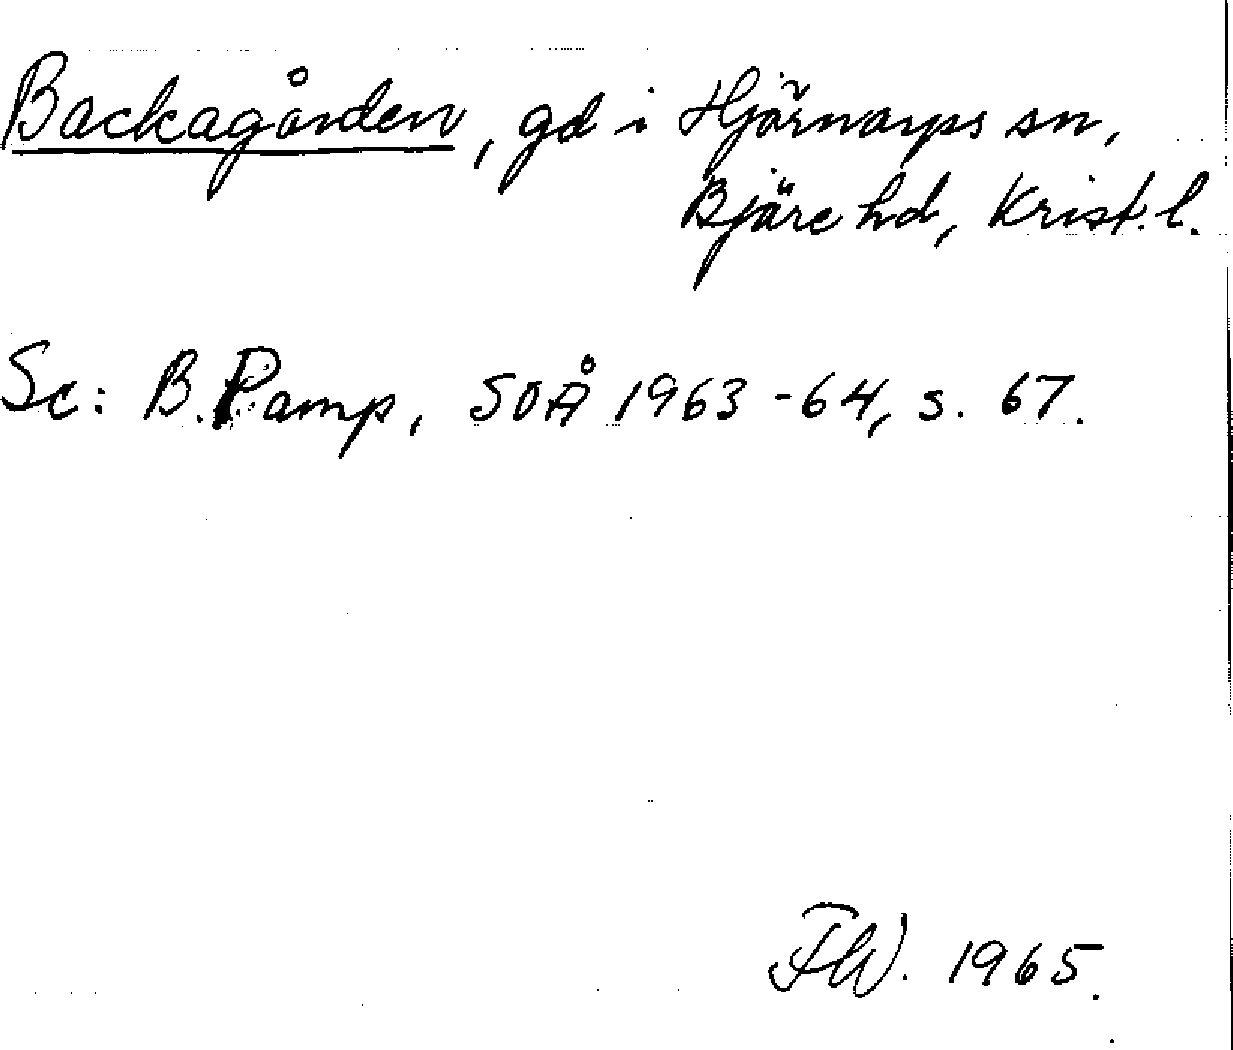 Backagården, gd i Hjärnarps sn,
Bjäre hd, Krist. l.
Sc: B. Pamp, SOÅ 1963-64, s. 67.
FW. 1965.